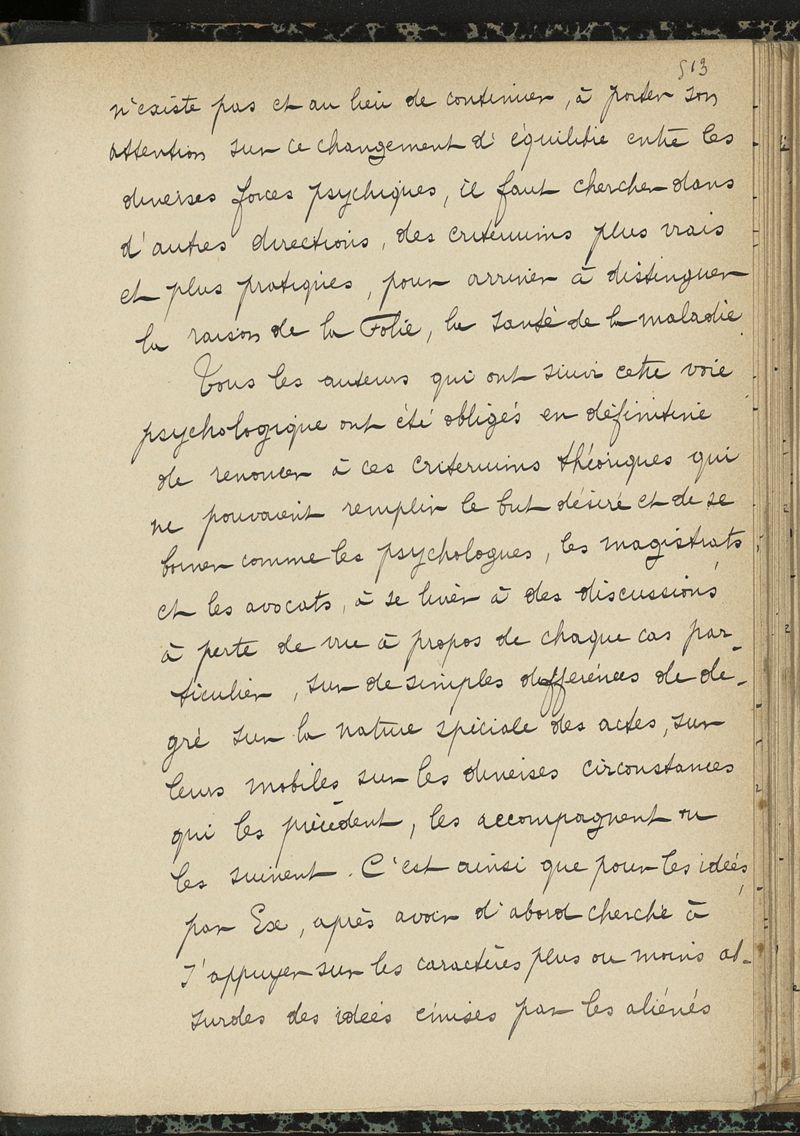 513
n'existe pas et au lieu de continuer, à porter son
attention sur ce changement d'équilibre entre les
diverses forces psychiques, il faut chercher dans
d'autres directions, des criteriums plus vrais
et plus pratiques, pour arriver à distinguer
la raison de la Folie, la santé de la maladie.
Tous les auteurs qui ont suivi cette voie
psychologique ont été obligés en définitive
de renoncer à ces criteriums théoriques qui
ne pouvaient remplir le but désiré et de se
borner comme les psychologues, les magistrats
et les avocats, à se livrer à des discussions
à perte de vue à propos de chaque cas par-
ticulier, sur de simples differénces de de-
gré sur la nature spéciale des actes, sur
leurs mobiles sur les diverses circonstances
qui les précèdent, les accompagnent ou
les suivent. C'est ainsi que pour les ideés,
par Ex, après avoir d'abord cherché à
s'appuyer sur les caractères plus ou moins ab-
surdes des ideés émises par les aliénés